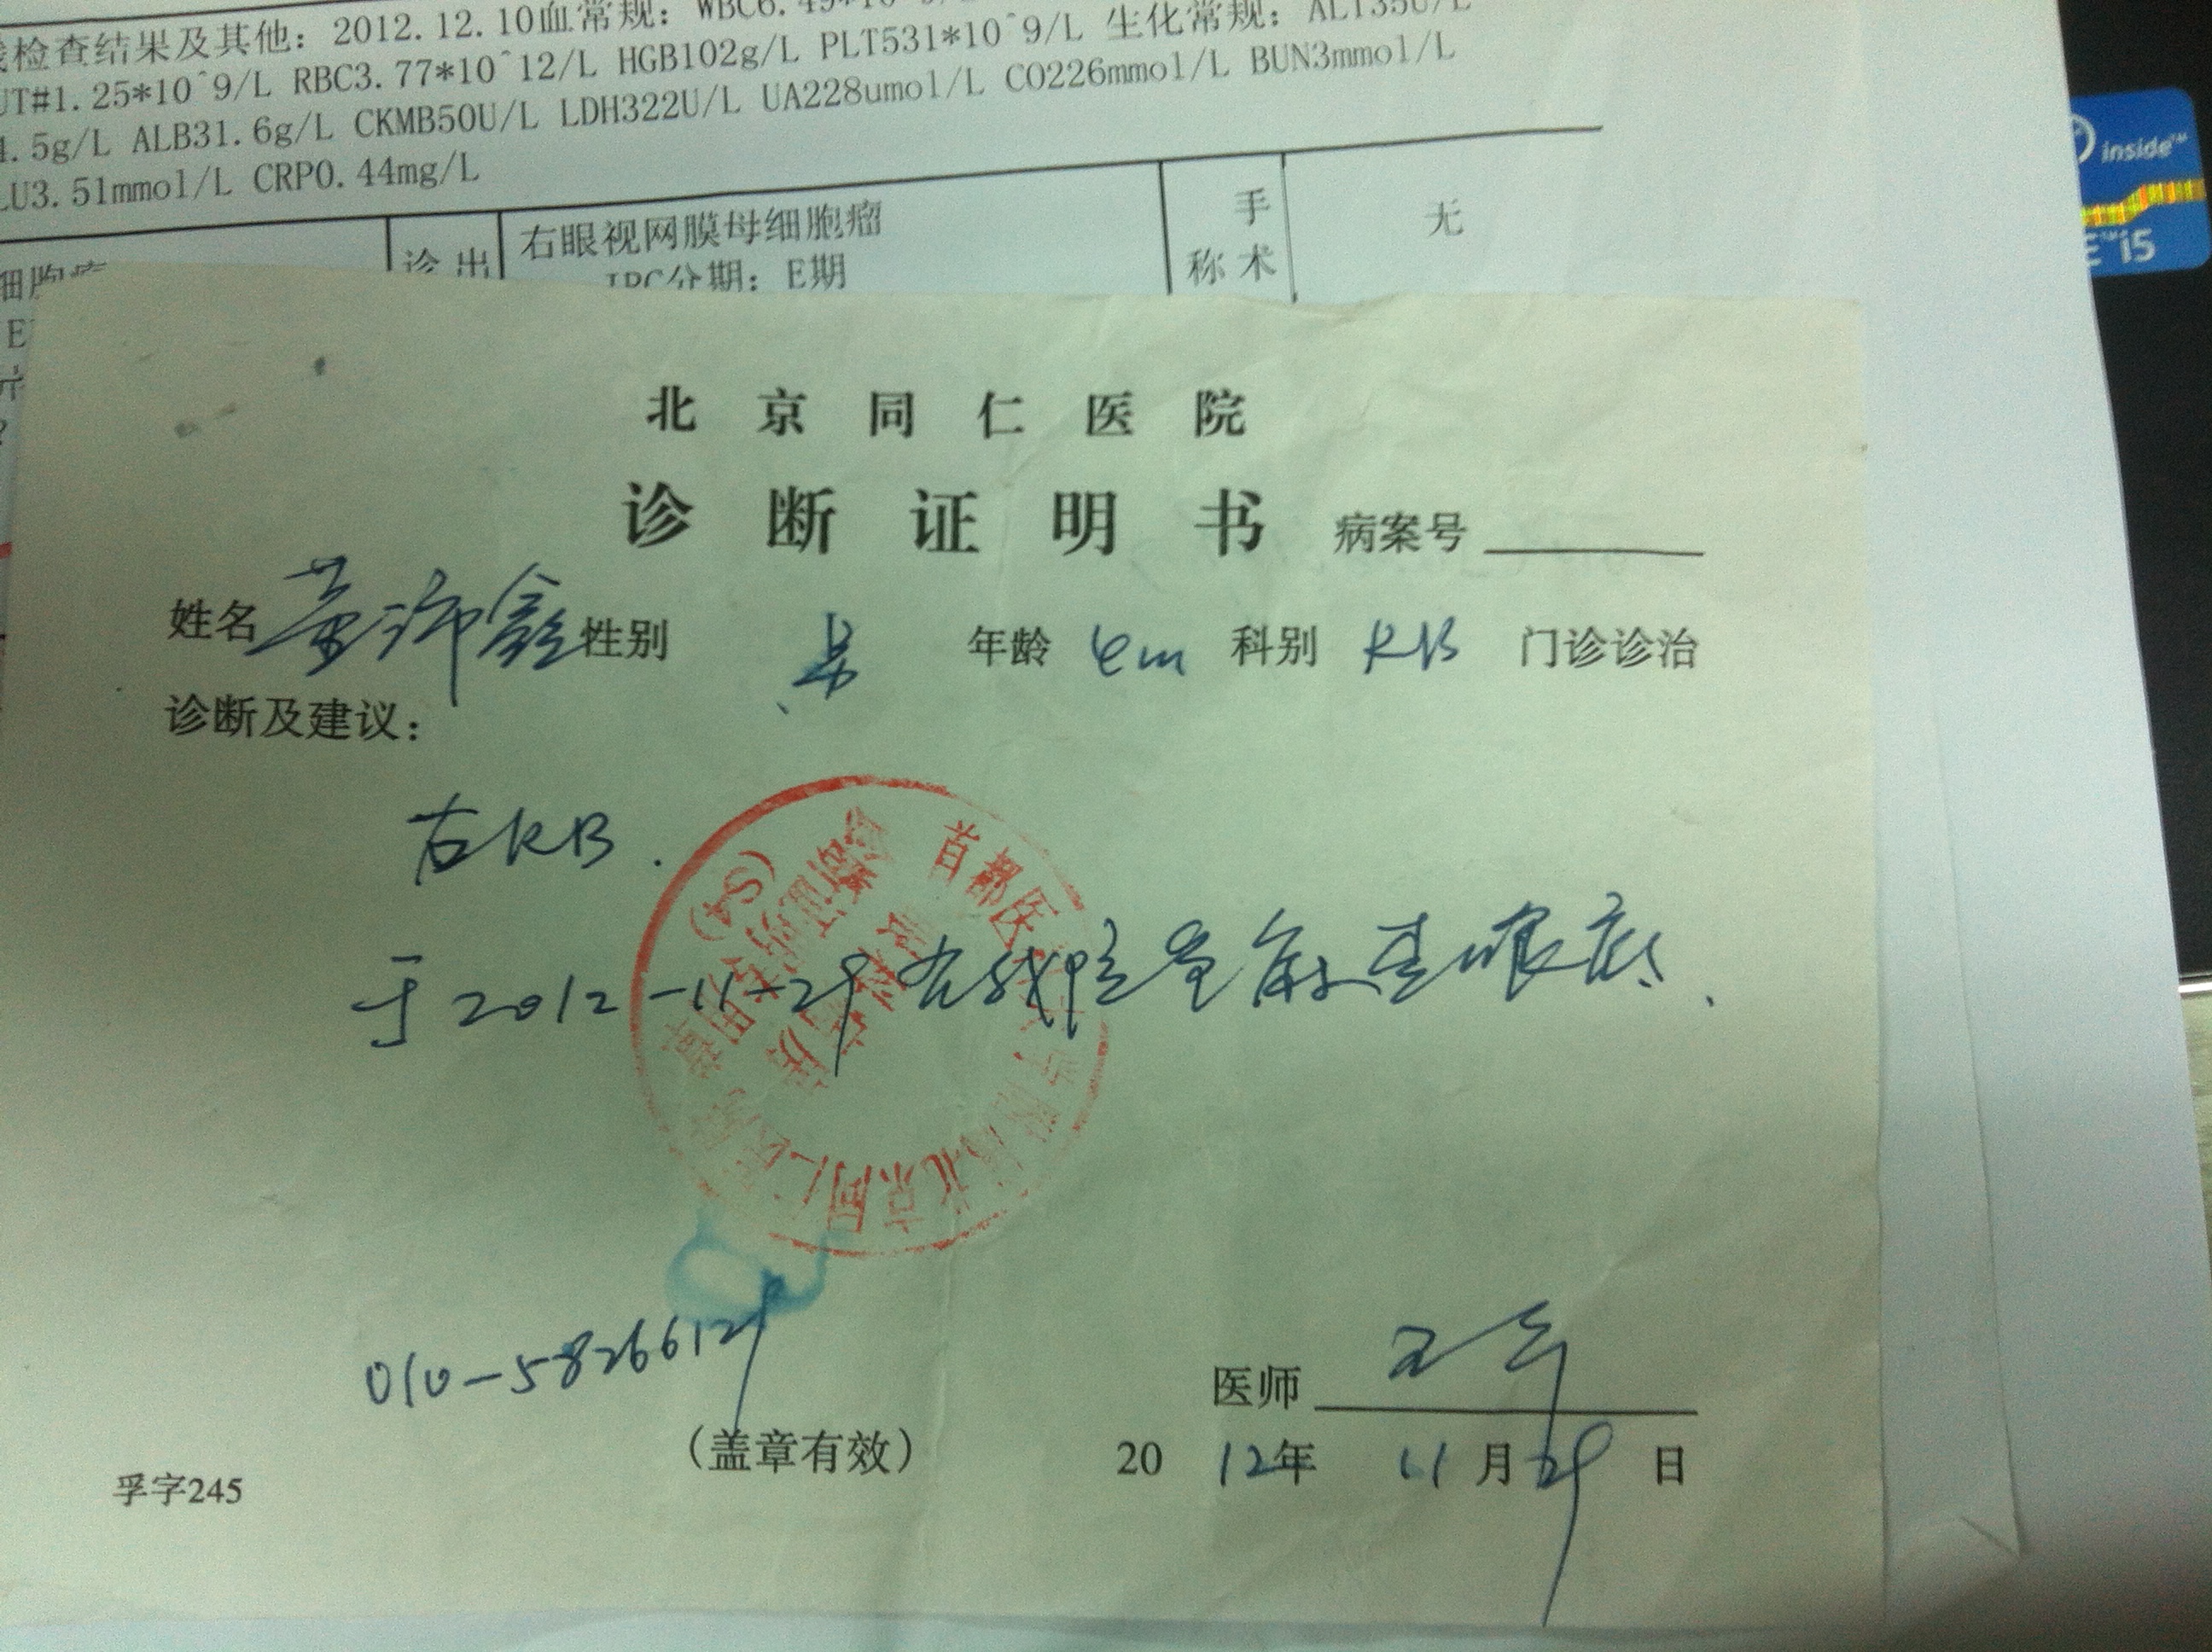 检查结果及其他: 2012.12.10血常规: WBC6.49*10^9/L 生化常规: ALT35U/L
UT#1.25*10^9/L RBC3.77*10^12/L HGB102g/L PLT531*10^9/L
4.5g/L ALB31.6g/L CKMB50U/L LDH322U/L UA228umol/L CO226mmol/L BUN3mmol/L
LU3.51mmol/L CRP0.44mg/L
诊 出 右眼视网膜母细胞瘤 手 无
分期: E期 称 术
北京同仁医院
诊断证明书 病案号
姓名 性别 男 年龄 4m 科别 RB 门诊诊治
诊断及建议:
右RB.
于2012-11-29在我院全麻查眼底.
首都医科大学附属北京同仁医院
(S4)
010-58266129
医师
(盖章有效) 2012年11月29日
孚字245
inside™
i5